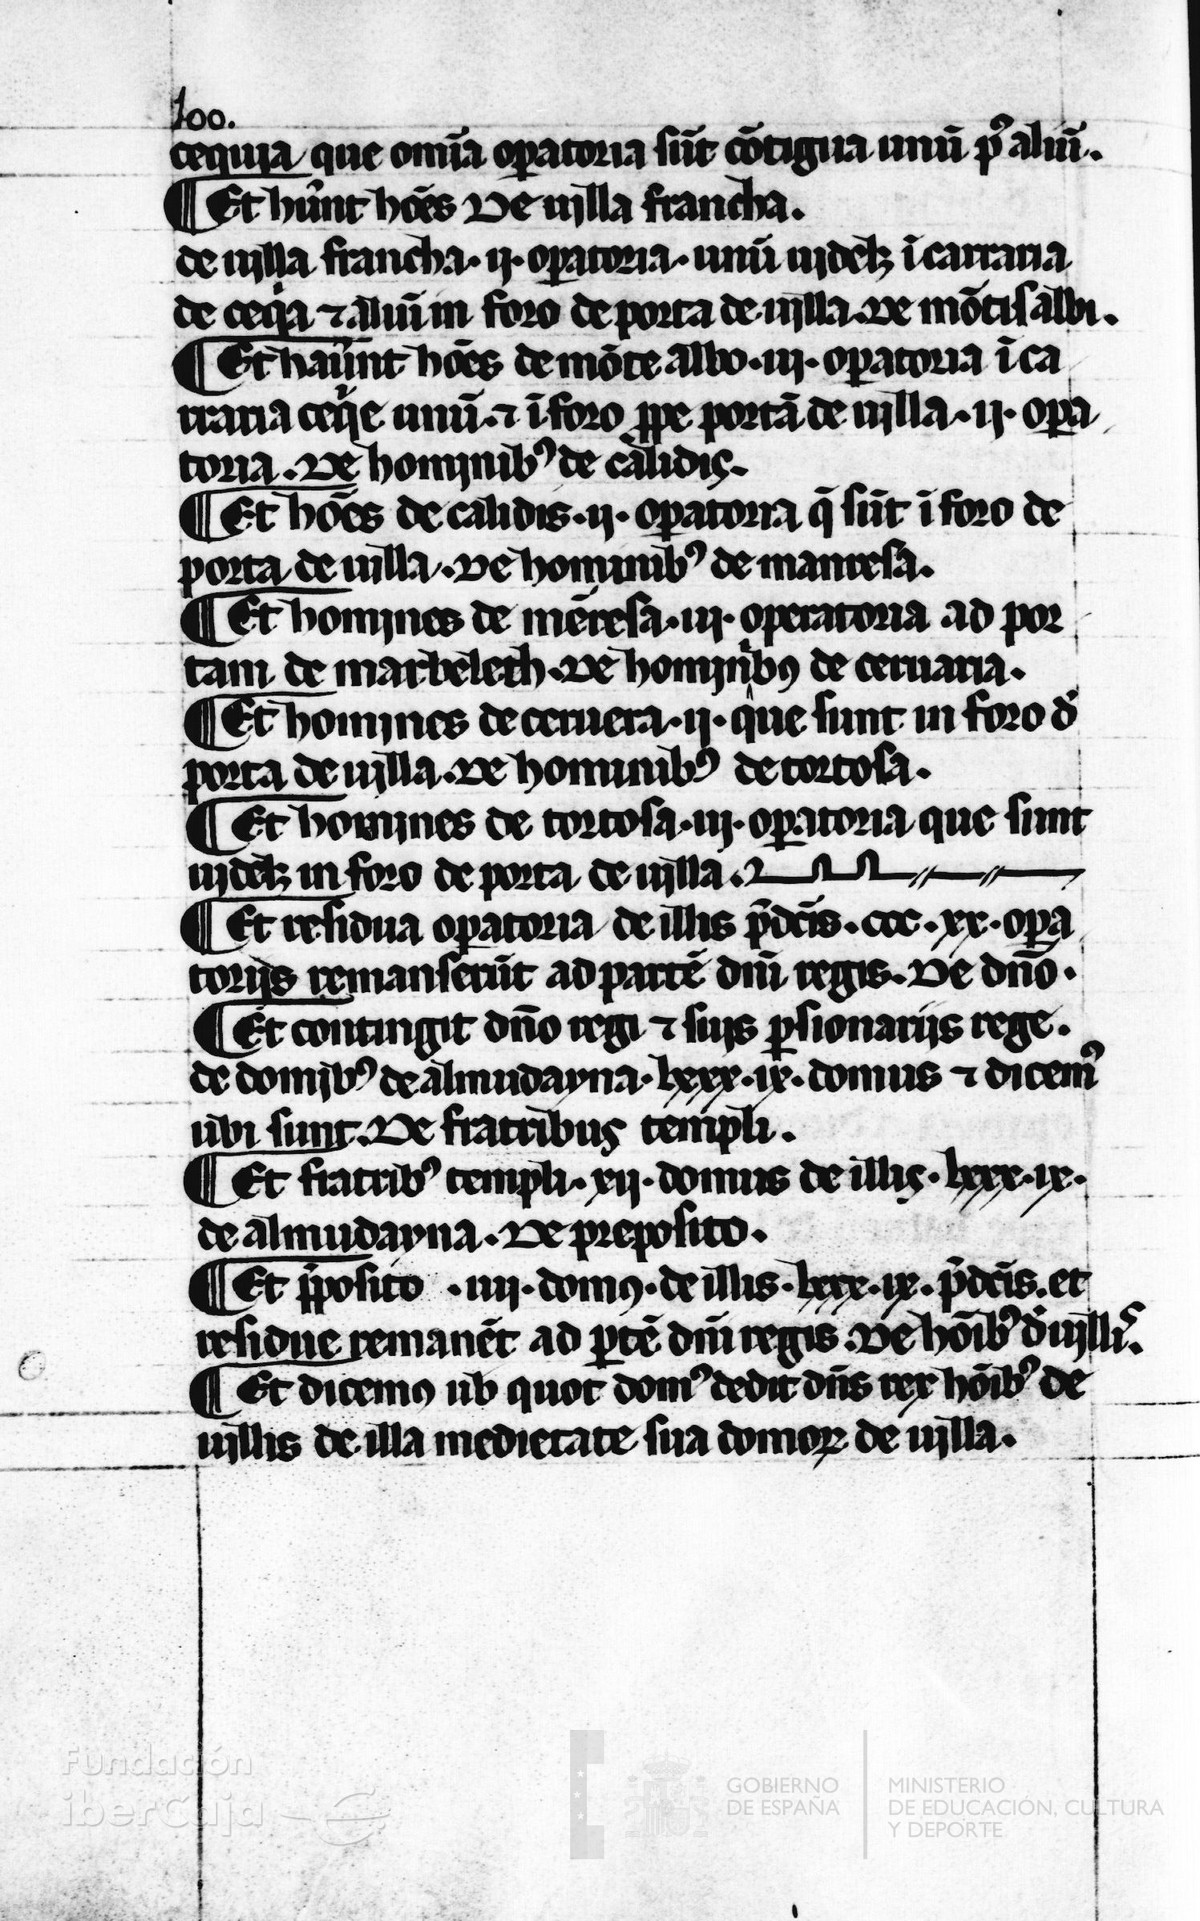 100.
cequia que om̄ia oꝑatoria sūt cōtigua unū ꝑ aliū.
¶ Et hūnt hoēs De uilla francha.
de uilla francha · ii · oꝑatoria · unū uidelꝫ ī carraria
de ceqia ⁊ aliū in foro de porta de uilla. De mōtisalbi.
¶ Et haūnt hoēs de mōte albo · iii · oꝑatoria ī ca
rraria ceqie unū · ⁊ ī foro ꝓpe portā de uilla · ii · oꝑa
toria. De hominib᾽ de calidis.
¶ Et hoēs de calidis · ii · oꝑatoria q̄ sūt ī foro de
porta de uilla. De hominib᾽ de manresa.
¶ Et homines de mēresa · iii · operatoria ad por
tam de marbeleth. De hominibꝯ de ceruaria.
¶ Et homines de ceruera · ii · que sunt in foro d̄
porta de uilla. De hominib᾽ de tortosa.
¶ Et homines de tortosa · iii · oꝑatoria que sunt
uidelꝫ in foro de porta de uilla.
¶ Et residua oꝑatoria de illis p̄dcīs · ccc · xx · oꝑa
torijs remanserūt ad partē dnī regis. De dn̄o.
¶ Et contingit dn̄o regi ⁊ suis ꝑsionarijs rege.
de domib᾽ de almudayna · lxxx · ix · domus ⁊ dicem᾽
ubi sunt. De fratribus templi.
¶ Et fratrib᾽ templi · xii · domus de illis · lxxx · ix ·
de almudayna. De preposito.
¶ Et p̄posito · iiii · domꝯ · de illis · lxxx · ix · p̄dcīs. et
residue remanēt ad ꝑtē dnī regis. De hōib᾽ d̄ uilli᾽.
¶ Et dicemꝯ ub quot dom᾽ dedit dn̄s rex hōib᾽ de
uillis de illa medietate sua domoꝝ de uilla.
Fundación
iberCaja
GOBIERNO
DE ESPAÑA
MINISTERIO
DE EDUCACIÓN, CULTURA
Y DEPORTE